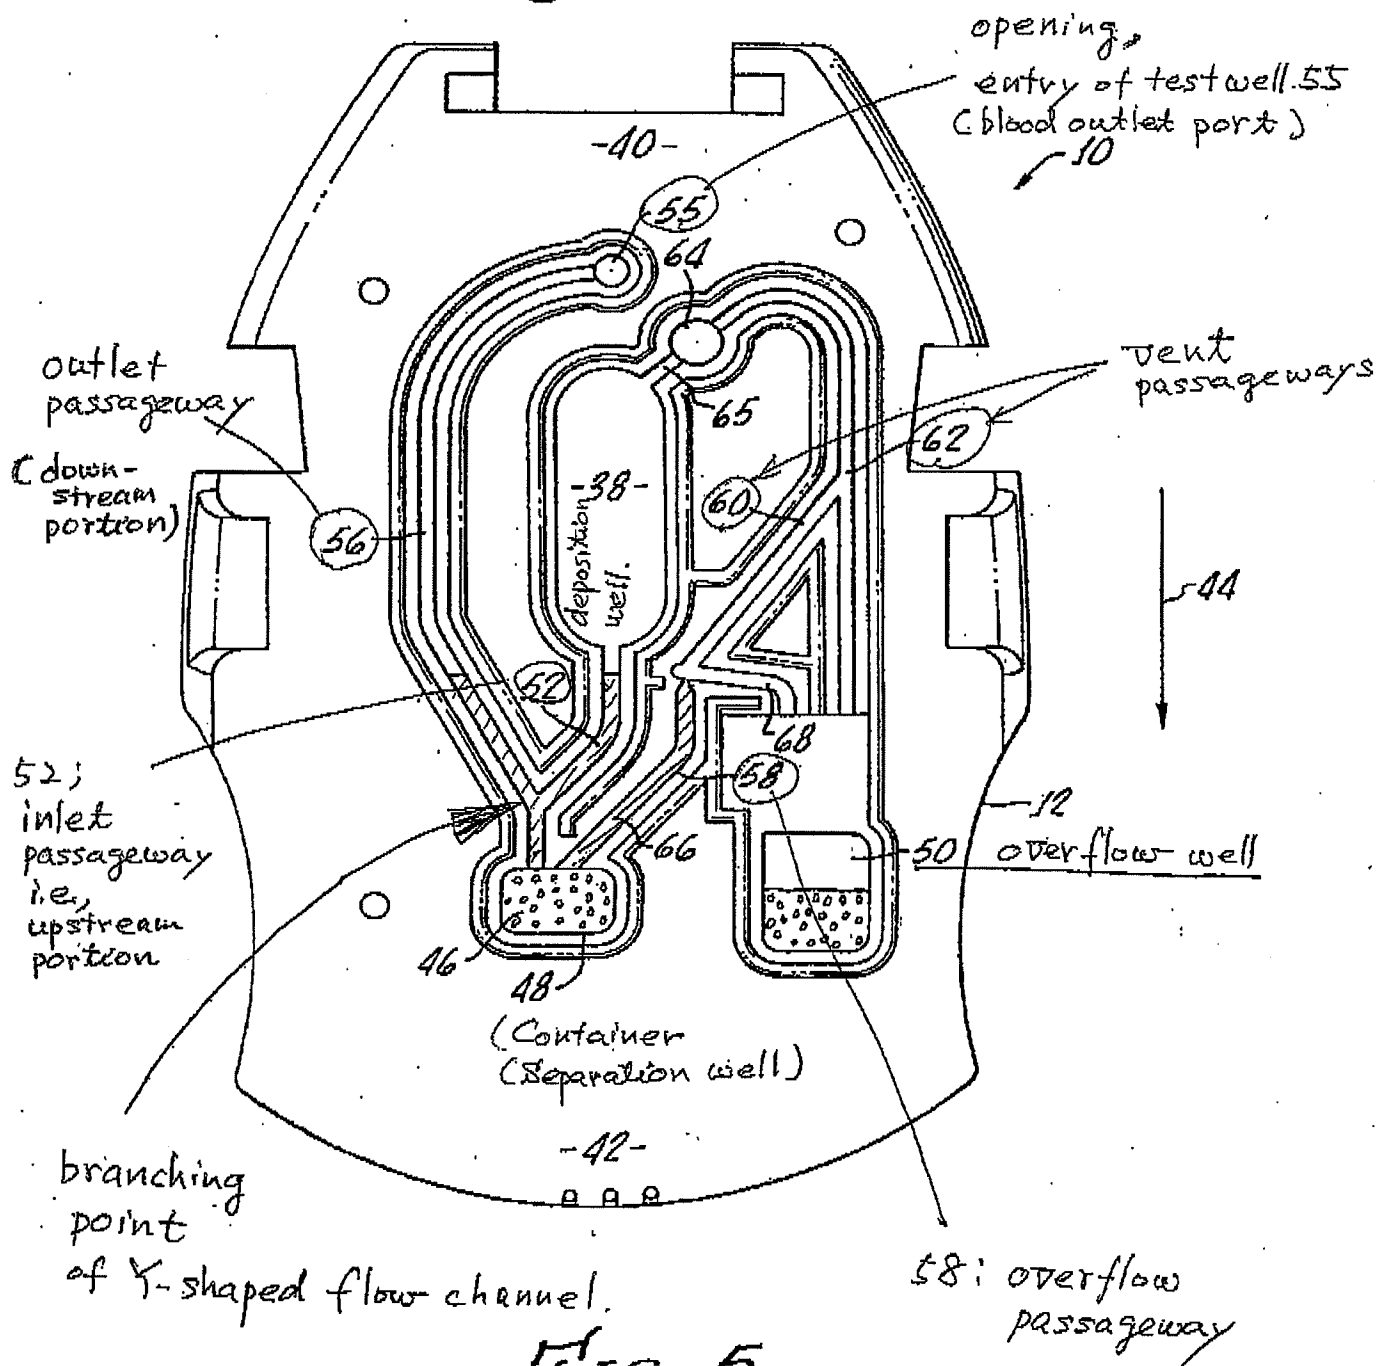 opening,
entry of testwell.55
(blood outlet port)
10
-40-
55
64
outlet
passageway
(down-
stream
portion)
56
vent
passageways
62
65
-38-
deposition
well.
60
44
52
52;
inlet
passageway
i.e.,
upstream
portion
68
58
12
66
50 overflow well
46
48
(Container
(Separation well)
-42-
branching
point
of Y-shaped flow channel.
58: overflow
passageway